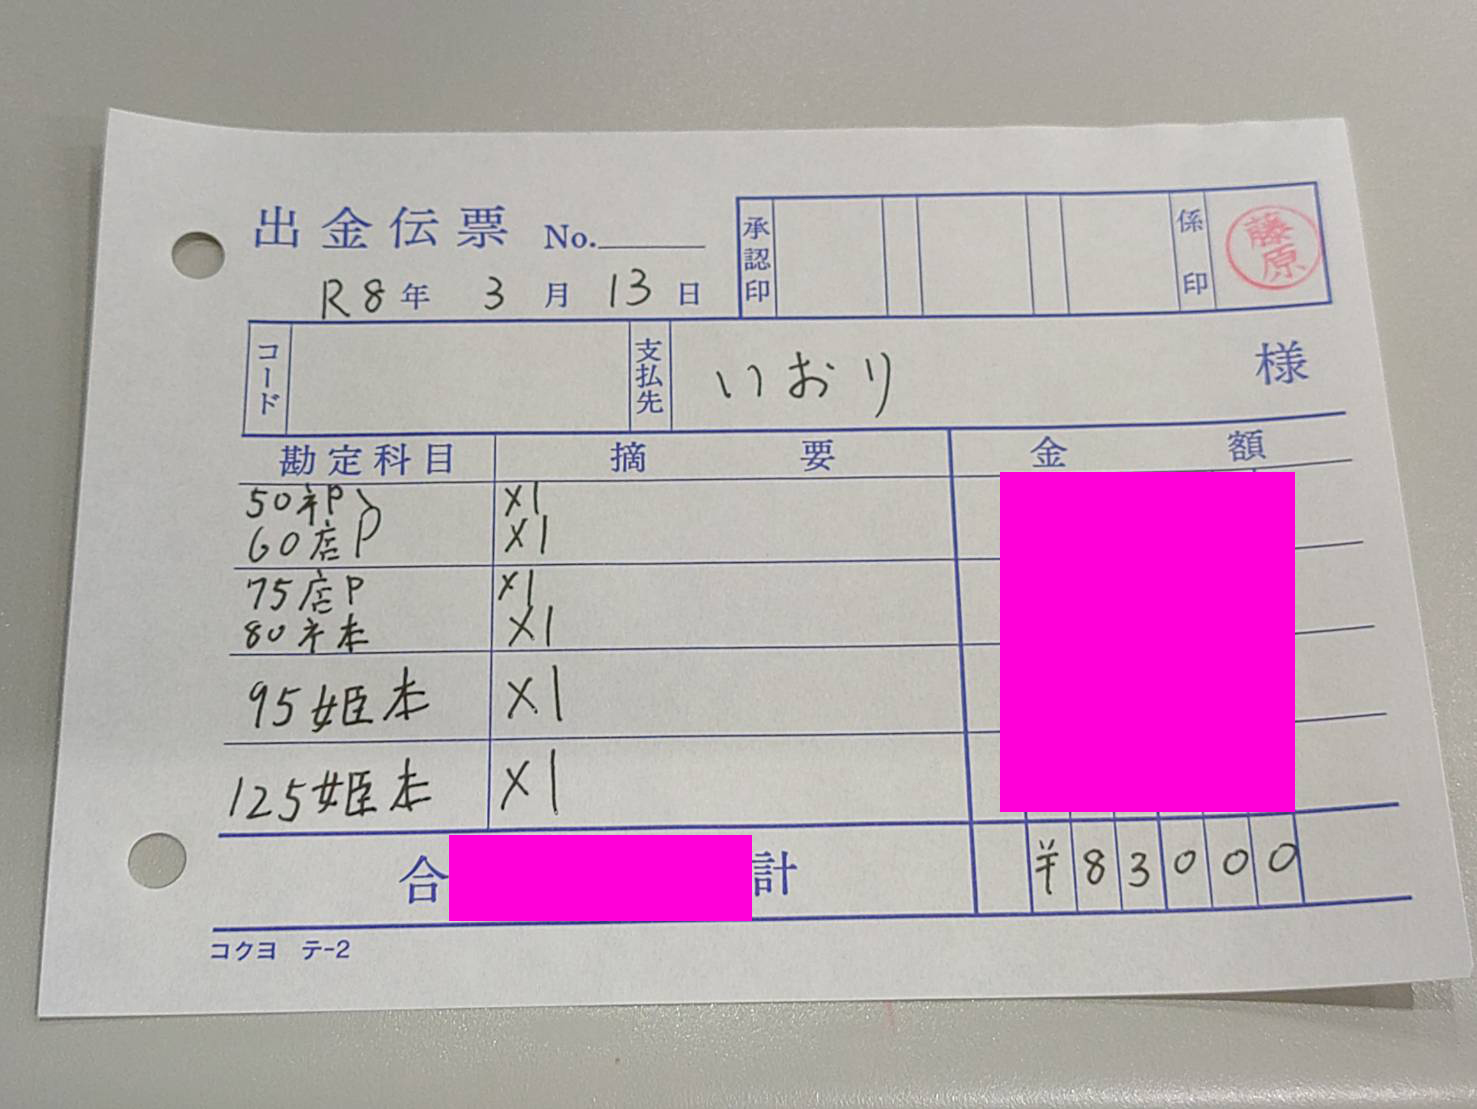 出金伝票 No.
R8年 3月13日
承認印
係印
藤原
コード
支払先 いおり 様
勘定科目 摘要 金額
50ネP ×1
60店P ×1
75店P ×1
80ネ本 ×1
95姫本 ×1
125姫本 ×1
合計 ¥83000
コクヨ テ-2